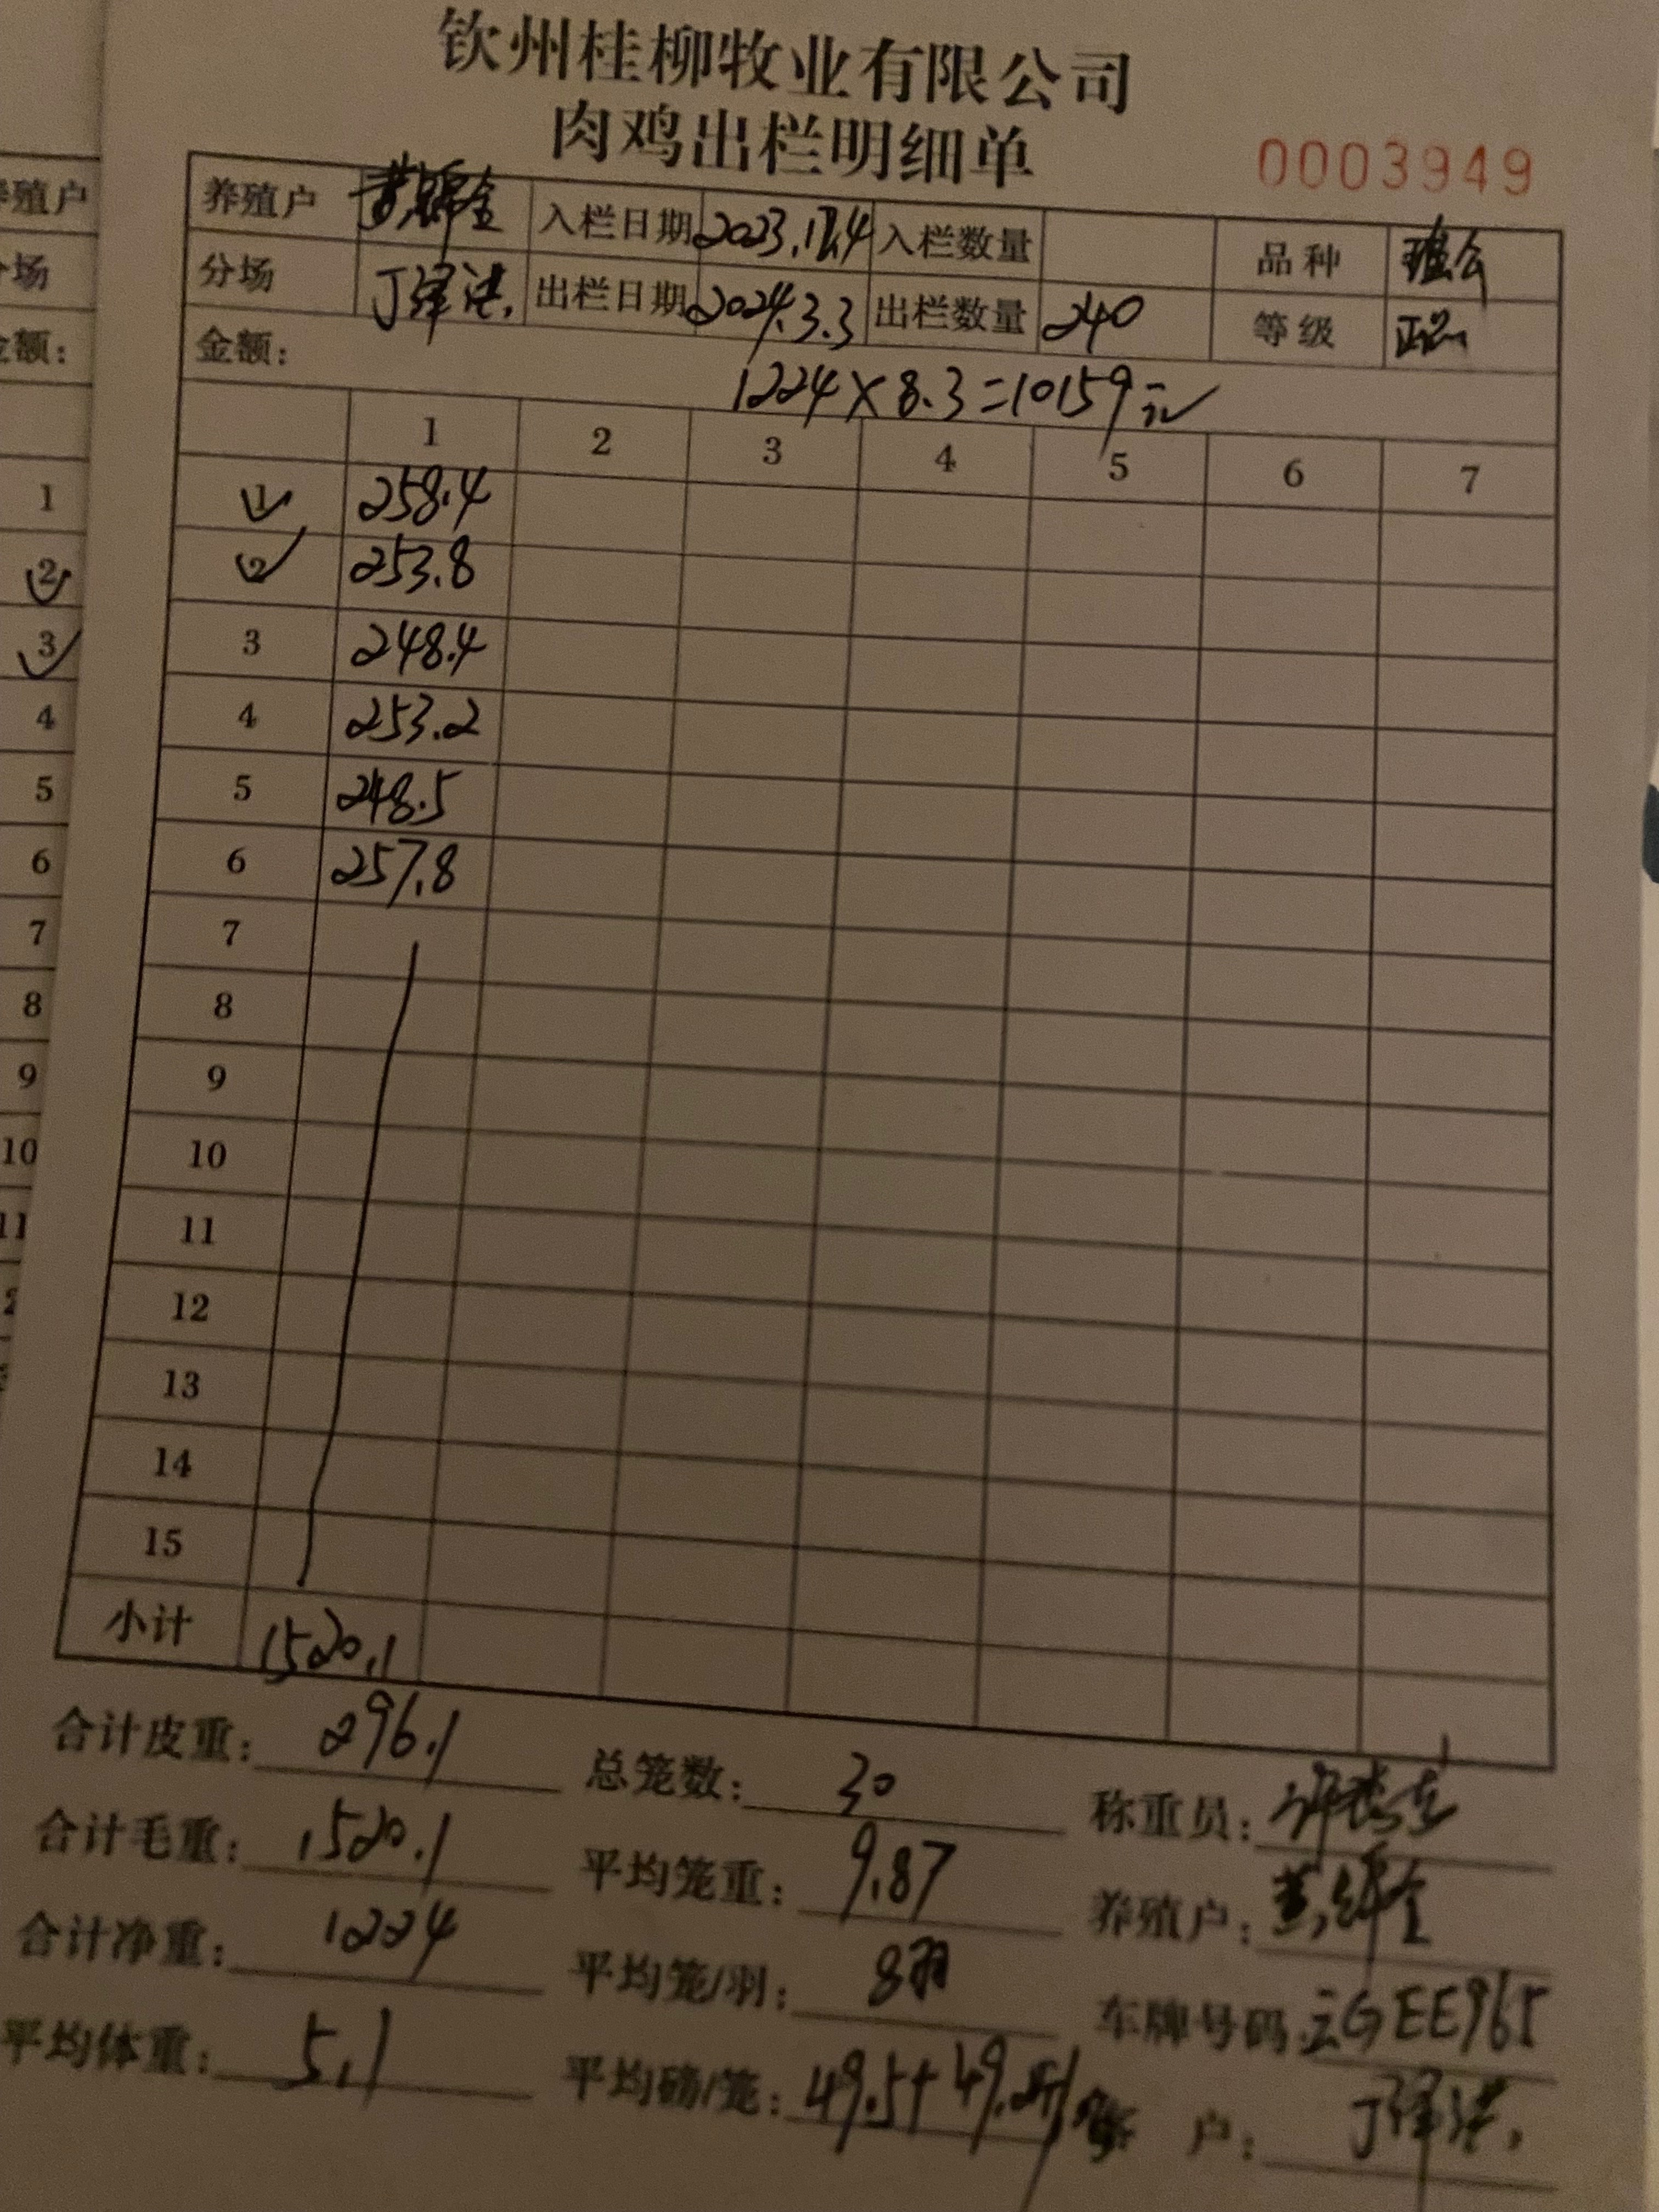 钦州桂柳牧业有限公司
肉鸡出栏明细单
0003949
养殖户 入栏日期 入栏数量 品种
分场 丁泽洪. 出栏日期 2024.3.3 出栏数量 240 等级 正品
金额: 1224×8.3=10159元
1 2 3 4 5 6 7
1 258.4
2 253.8
3 248.4
4 253.2
5 248.5
6 257.8
7
8
9
10
11
12
13
14
15
小计 1520.1
合计皮重: 296.1 总笼数: 30 称重员:
合计毛重: 1520.1 平均笼重: 9.87 养殖户:
合计净重: 1224 平均笼/羽: 8羽 车牌号码: 云GEE965
平均体重: 5.1 平均磅/笼: 49.5+ 客户: 丁泽洪.
殖户
场
金额:
1
2
3
4
5
6
7
8
9
10
11